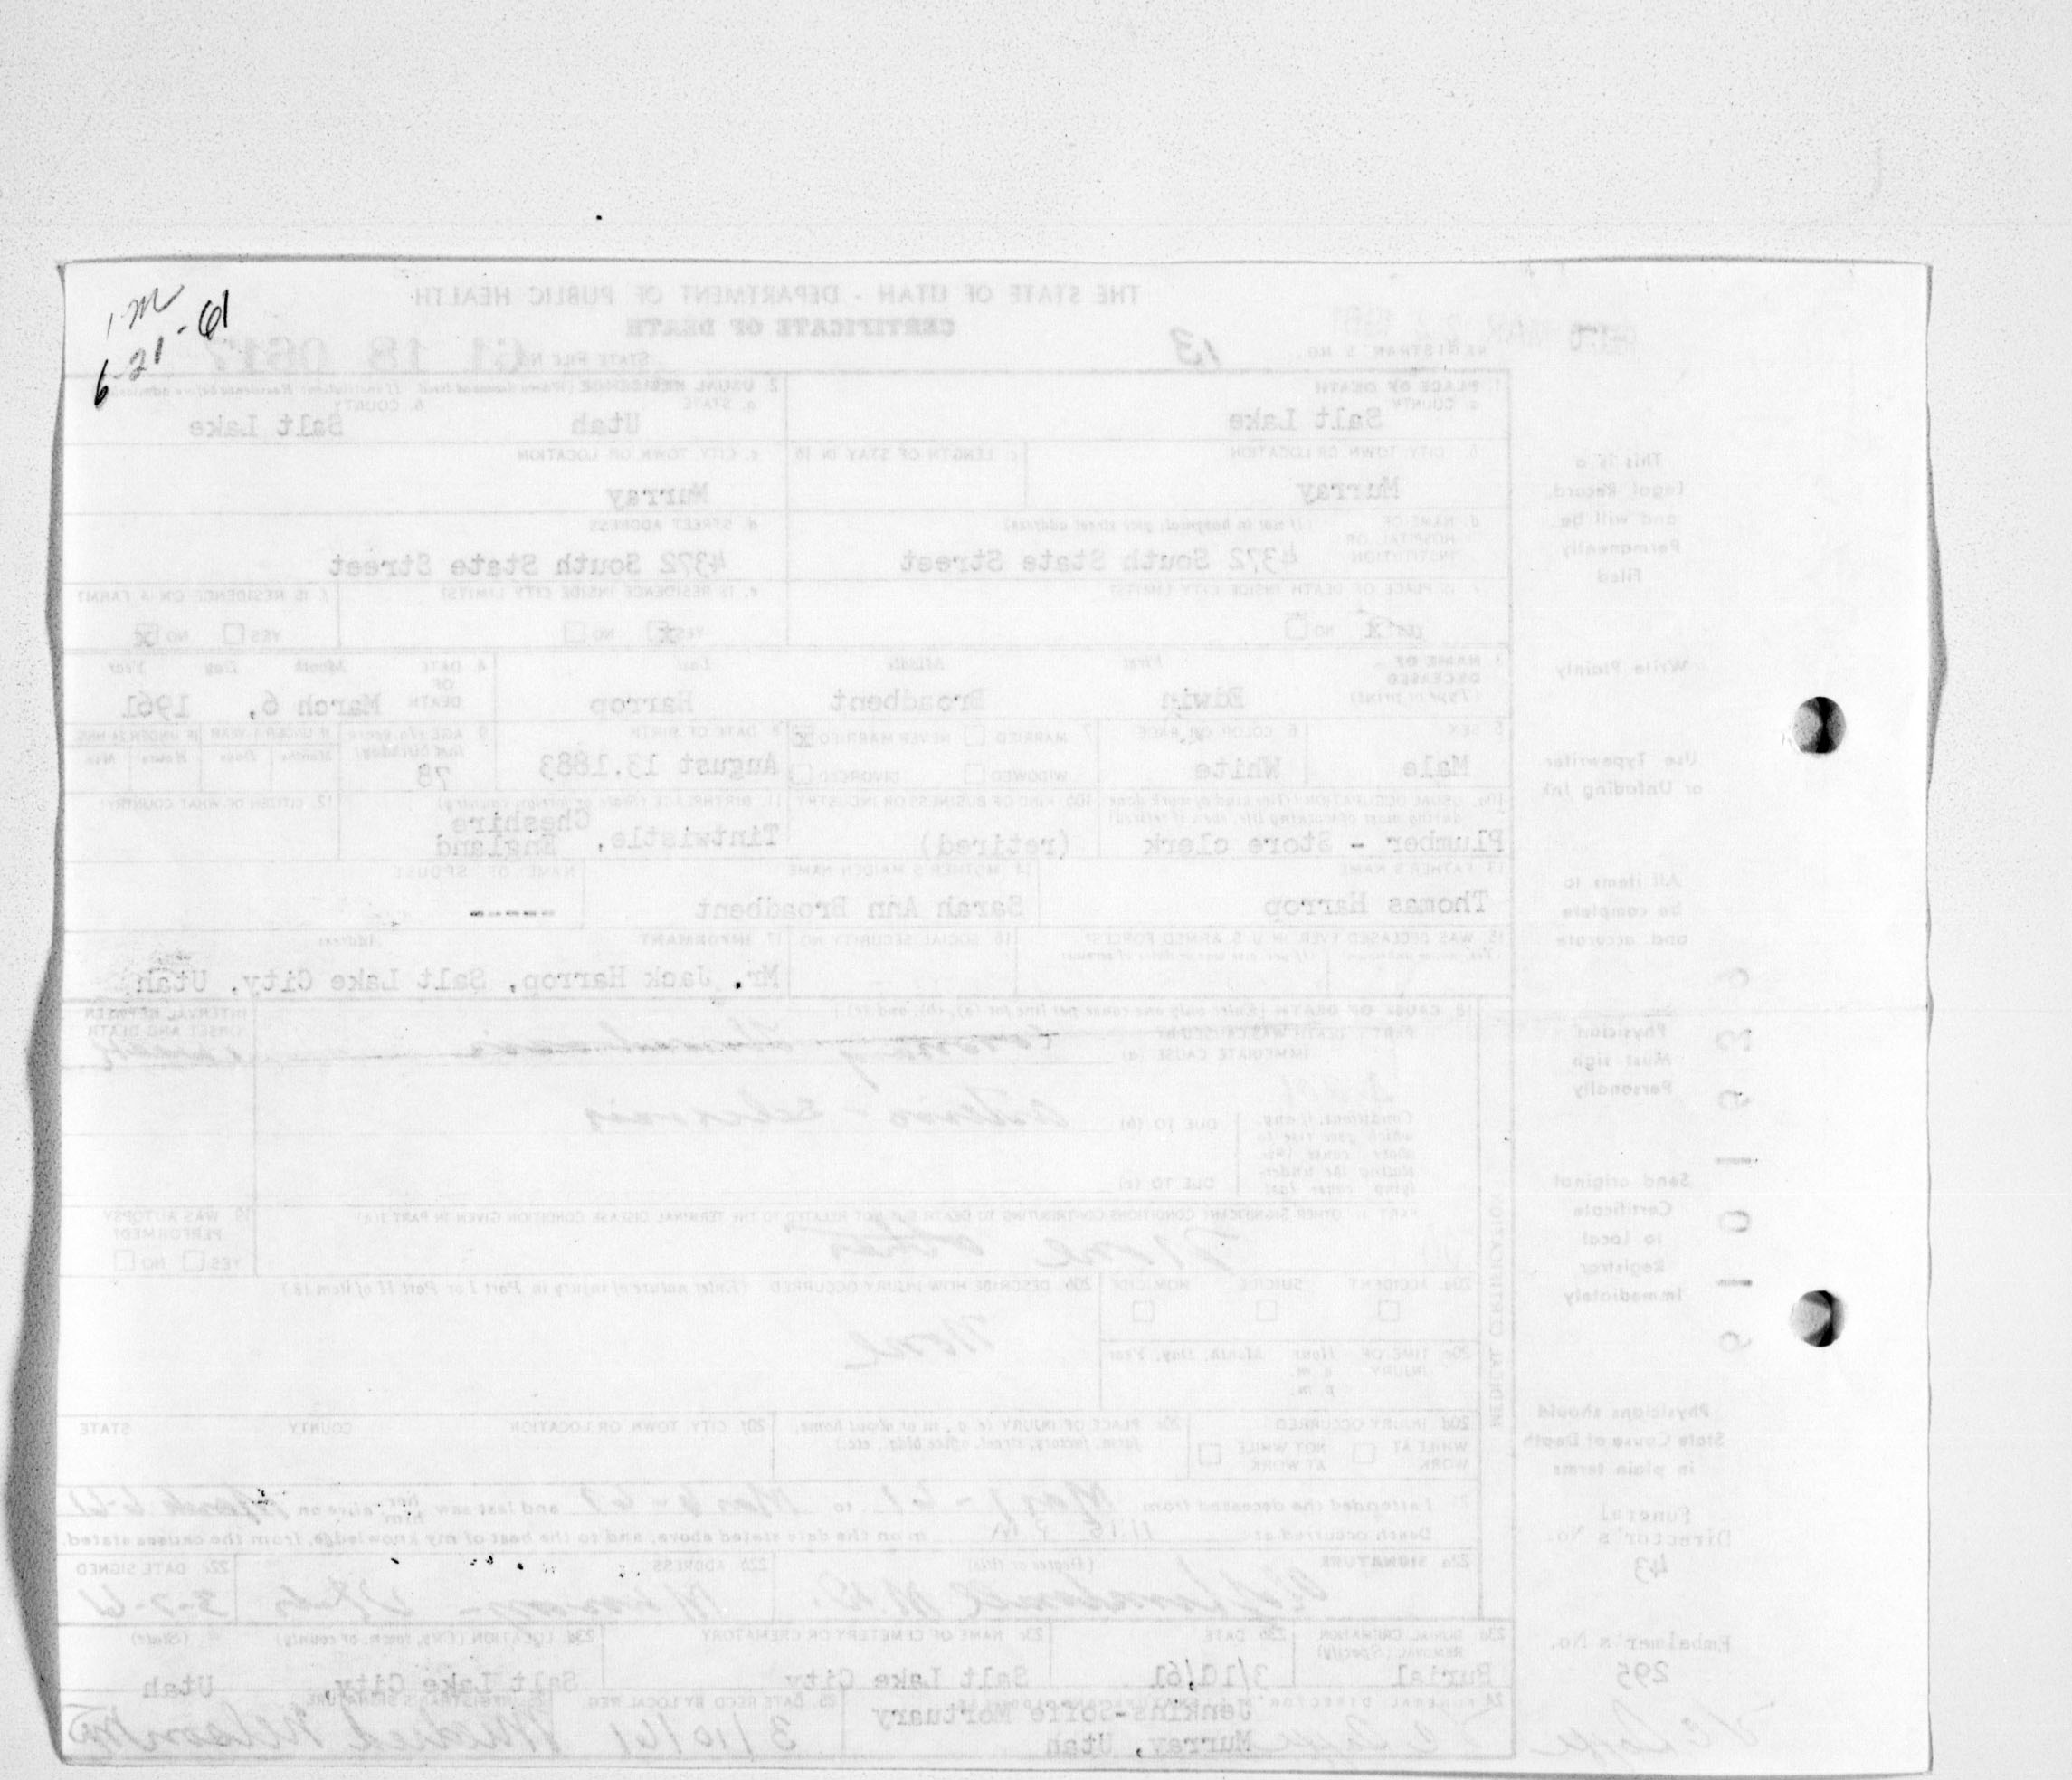 1 m
6-21-61
THE STATE OF UTAH - DEPARTMENT OF PUBLIC HEALTH
CERTIFICATE OF DEATH
REGISTRAR'S NO. 13
STATE FILE NO. 61 18 0617
1. PLACE OF DEATH
a. COUNTY
Salt Lake
2. USUAL RESIDENCE (Where deceased lived. If institution: Residence before admission)
a. STATE
Utah
b. COUNTY
Salt Lake
b. CITY, TOWN OR LOCATION
Murray
c. LENGTH OF STAY IN 1b
c. CITY, TOWN OR LOCATION
Murray
d. NAME OF HOSPITAL OR INSTITUTION (If not in hospital, give street address)
4372 South State Street
d. STREET ADDRESS
4372 South State Street
IS PLACE OF DEATH INSIDE CITY LIMITS?
YES X NO
e. IS RESIDENCE INSIDE CITY LIMITS?
YES X NO
f. IS RESIDENCE ON A FARM?
YES NO X
3. NAME OF DECEASED (Type or print)
First Middle Last
Edwin Broadbent Harrop
4. DATE OF DEATH Month Day Year
March 6, 1961
5. SEX
Male
6. COLOR OR RACE
White
7. MARRIED NEVER MARRIED X
WIDOWED DIVORCED
8. DATE OF BIRTH
August 13.1883
9. AGE (In years last birthday)
78
IF UNDER 1 YEAR IF UNDER 24 HRS.
Months Days Hours Min.
10a. USUAL OCCUPATION (Give kind of work done during most of working life, even if retired)
Plumber - Store clerk
10b. KIND OF BUSINESS OR INDUSTRY
(retired)
11. BIRTHPLACE (State or foreign country)
Tintwistle, Cheshire England
12. CITIZEN OF WHAT COUNTRY?
13. FATHER'S NAME
Thomas Harrop
14. MOTHER'S MAIDEN NAME
Sarah Ann Broadbent
NAME OF SPOUSE
-----
15. WAS DECEASED EVER IN U.S. ARMED FORCES?
(Yes, no, or unknown) (If yes, give war or dates of service)
16. SOCIAL SECURITY NO.
17. INFORMANT Address
Mr. Jack Harrop, Salt Lake City, Utah
18. CAUSE OF DEATH (Enter only one cause per line for (a), (b), and (c).)
PART I. DEATH WAS CAUSED BY:
IMMEDIATE CAUSE (a) Coronary Thrombosis
INTERVAL BETWEEN ONSET AND DEATH
Conditions, if any, which gave rise to above cause (a), stating the underlying cause last.
DUE TO (b) Arterio-sclerosis
DUE TO (c)
PART II. OTHER SIGNIFICANT CONDITIONS CONTRIBUTING TO DEATH BUT NOT RELATED TO THE TERMINAL DISEASE CONDITION GIVEN IN PART I(a)
None other
19. WAS AUTOPSY PERFORMED?
YES NO
20a. ACCIDENT SUICIDE HOMICIDE
20b. DESCRIBE HOW INJURY OCCURRED (Enter nature of injury in Part I or Part II of item 18.)
None
20c. TIME OF INJURY Hour Month, Day, Year
a.m.
p.m.
20d. INJURY OCCURRED
WHILE AT WORK NOT WHILE AT WORK
20e. PLACE OF INJURY (e.g., in or about home, farm, factory, street, office bldg., etc.)
20f. CITY, TOWN, OR LOCATION COUNTY STATE
21. I attended the deceased from to and last saw her him alive on March 6-61
Death occurred at 11:15 P.M. on the date stated above, and to the best of my knowledge, from the causes stated.
22a. SIGNATURE (Degree or title)
M.D.
22b. ADDRESS
Utah
22c. DATE SIGNED
3-7-61
23a. BURIAL, CREMATION, REMOVAL (Specify)
Burial
23b. DATE
3/10/61
23c. NAME OF CEMETERY OR CREMATORY
Salt Lake City
23d. LOCATION (City, town, or county) (State)
Salt Lake City, Utah
24. FUNERAL DIRECTOR'S
Jenkins-Soffe Mortuary
Murray, Utah
25. DATE REC'D BY LOCAL REG.
3/10/61
REGISTRAR'S SIGNATURE
Mildred Nelson
MEDICAL CERTIFICATION
This is a
Legal Record,
and will be
Permanently
Filed
Write Plainly
Use Typewriter
or Unfading Ink
All items to
be complete
and accurate
Physician
Must sign
Personally
Send original
Certificate
to Local
Registrar
Immediately
Physicians should
State Cause of Death
in plain terms
Funeral
Director's No.
43
Embalmer's No.
295